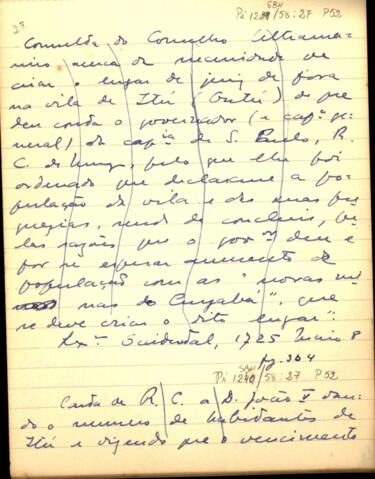 SBH
Pi 1239/58:27 P52
23
Consulta do Conselho Ultrama-
rino acerca da necessidade de
criar o lugar de juiz de fora
na vila de Itú (Outú) de que
deu conta o governador (e capm ge-
neral) da capia de S. Paulo, R.
C. de Menezes, pelo que lhe foi
ordenado que declarasse a po-
pulação da vila e das suas fre
guezias, sendo de concluir, pe-
las razões que o govor deu e
por se esperar aumento de
população com as "novas mi-
nas do Cuyabá", que
se deve criar o dito lugar".
Lxa Ocidental, 1725 Maio 8
pg. 304
SBH
Pi 1240/58:27 P52
Carta de R. C. a D. João V dan-
do o numero de habitantes de
Itú e dizendo que o vencimento